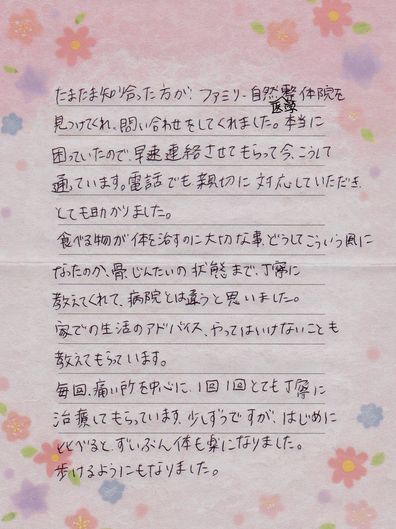 たまたま知り合った方が、ファミリー自然医学整体院を
見つけてくれ、問い合わせをしてくれました。本当に
困っていたので、早速連絡させてもらって今、こうして
通っています。電話でも親切に対応していただき、
とても助かりました。
食べる物が体を治すのに大切な事、どうしてこういう風に
なったのか、骨、じんたいの状態まで、丁寧に
教えてくれて、病院とは違うと思いました。
家での生活のアドバイス、やってはいけないことも
教えてもらっています。
毎回、痛い所を中心に、1回1回とても丁寧に
治療してもらっています。少しずつですが、はじめに
比べると、ずいぶん体も楽になりました。
歩けるようにもなりました。